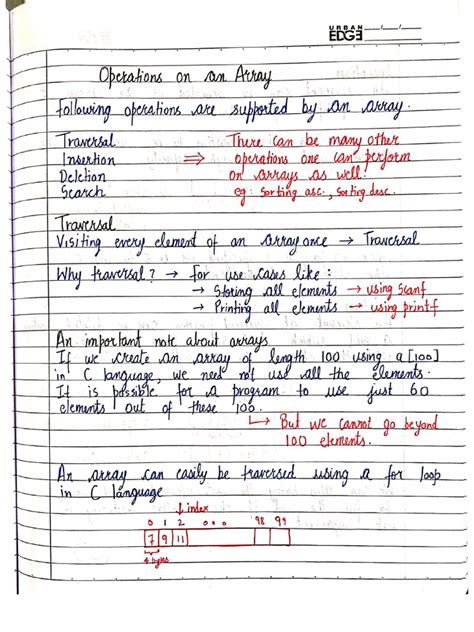 URBAN
EDGE
Operations on an Array
following operations are supported by an array.
Traversal
Insertion
Deletion
Search
⇒ There can be many other
operations one can perform
on arrays as well.
eg: sorting asc., sorting desc.
Traversal
Visiting every element of an array once → Traversal
Why traversal? → for use cases like :
→ Storing all elements → using Scanf
→ Printing all elements → using printf
An important note about arrays
If we create an array of length 100 using a [100]
in C language, we need not use all the elements.
It is possible for a program to use just 60
elements out of these 100.
↳ But we cannot go beyond
100 elements.
An array can easily be traversed using a for loop
in C language
↓ index
0 1 2 ... 98 99
7 9 11
4 bytes